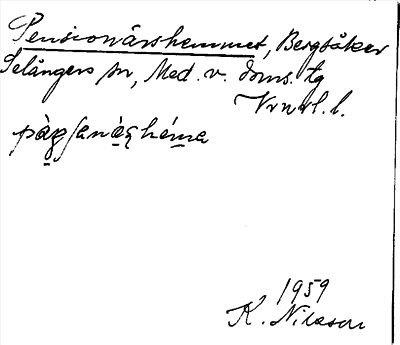 Pensionärshemmet, Bergsåker
Selångers sn, Med. v. doms. tg
Vrnrl. l.
1959
K. Nilsson